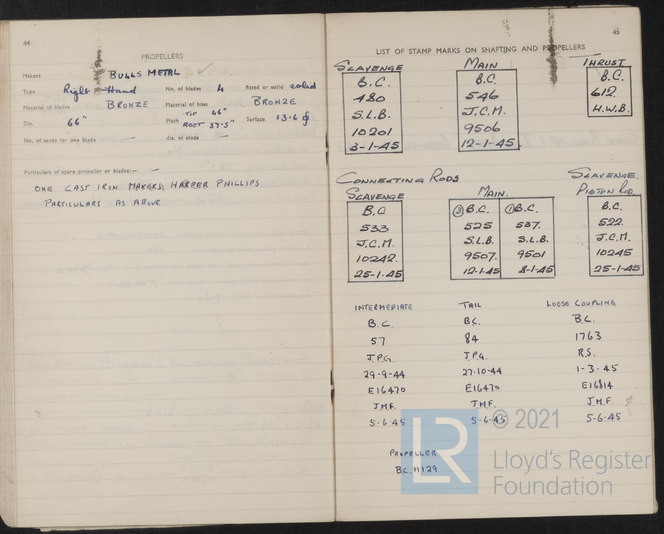 44
PROPELLERS
Makers BULLS METAL
Type Right Hand No. of blades 4 fitted or solid solid
Material of blades BRONZE Material of boss BRONZE
Dia. 66" Pitch TIP 46" ROOT 37.5" Surface 13.6
No. of studs for one blade — dia. of studs —
Particulars of spare propeller or blades:—
ONE CAST IRON MAKERS HARPER PHILLIPS
PARTICULARS AS ABOVE
45
LIST OF STAMP MARKS ON SHAFTING AND PROPELLERS
SCAVENGE MAIN THRUST
B.C. B.C. B.C.
480 546 612
S.L.B. J.C.M. H.W.B.
10201 9506
3-1-45 12-1-45
CONNECTING RODS
SCAVENGE MAIN. SCAVENGE PISTON ROD
B.C. ② B.C. ① B.C. B.C.
533 525 537. 522
J.C.M. S.L.B. S.L.B. J.C.M.
10242. 9507. 9501 10245
25-1-45 12-1-45 8-1-45 25-1-45
INTERMEDIATE TAIL LOOSE COUPLING
B.C. B.C. B.C.
57 84 1763
J.P.G. J.P.G. R.S.
29-9-44 27-10-44 1-3-45
E16470 E16470 E16814
J.M.F. J.M.F. J.M.F.
5-6-45 5-6-45 5-6-45
PROPELLER
B.C. 11129
LR
© 2021
Lloyd's Register
Foundation